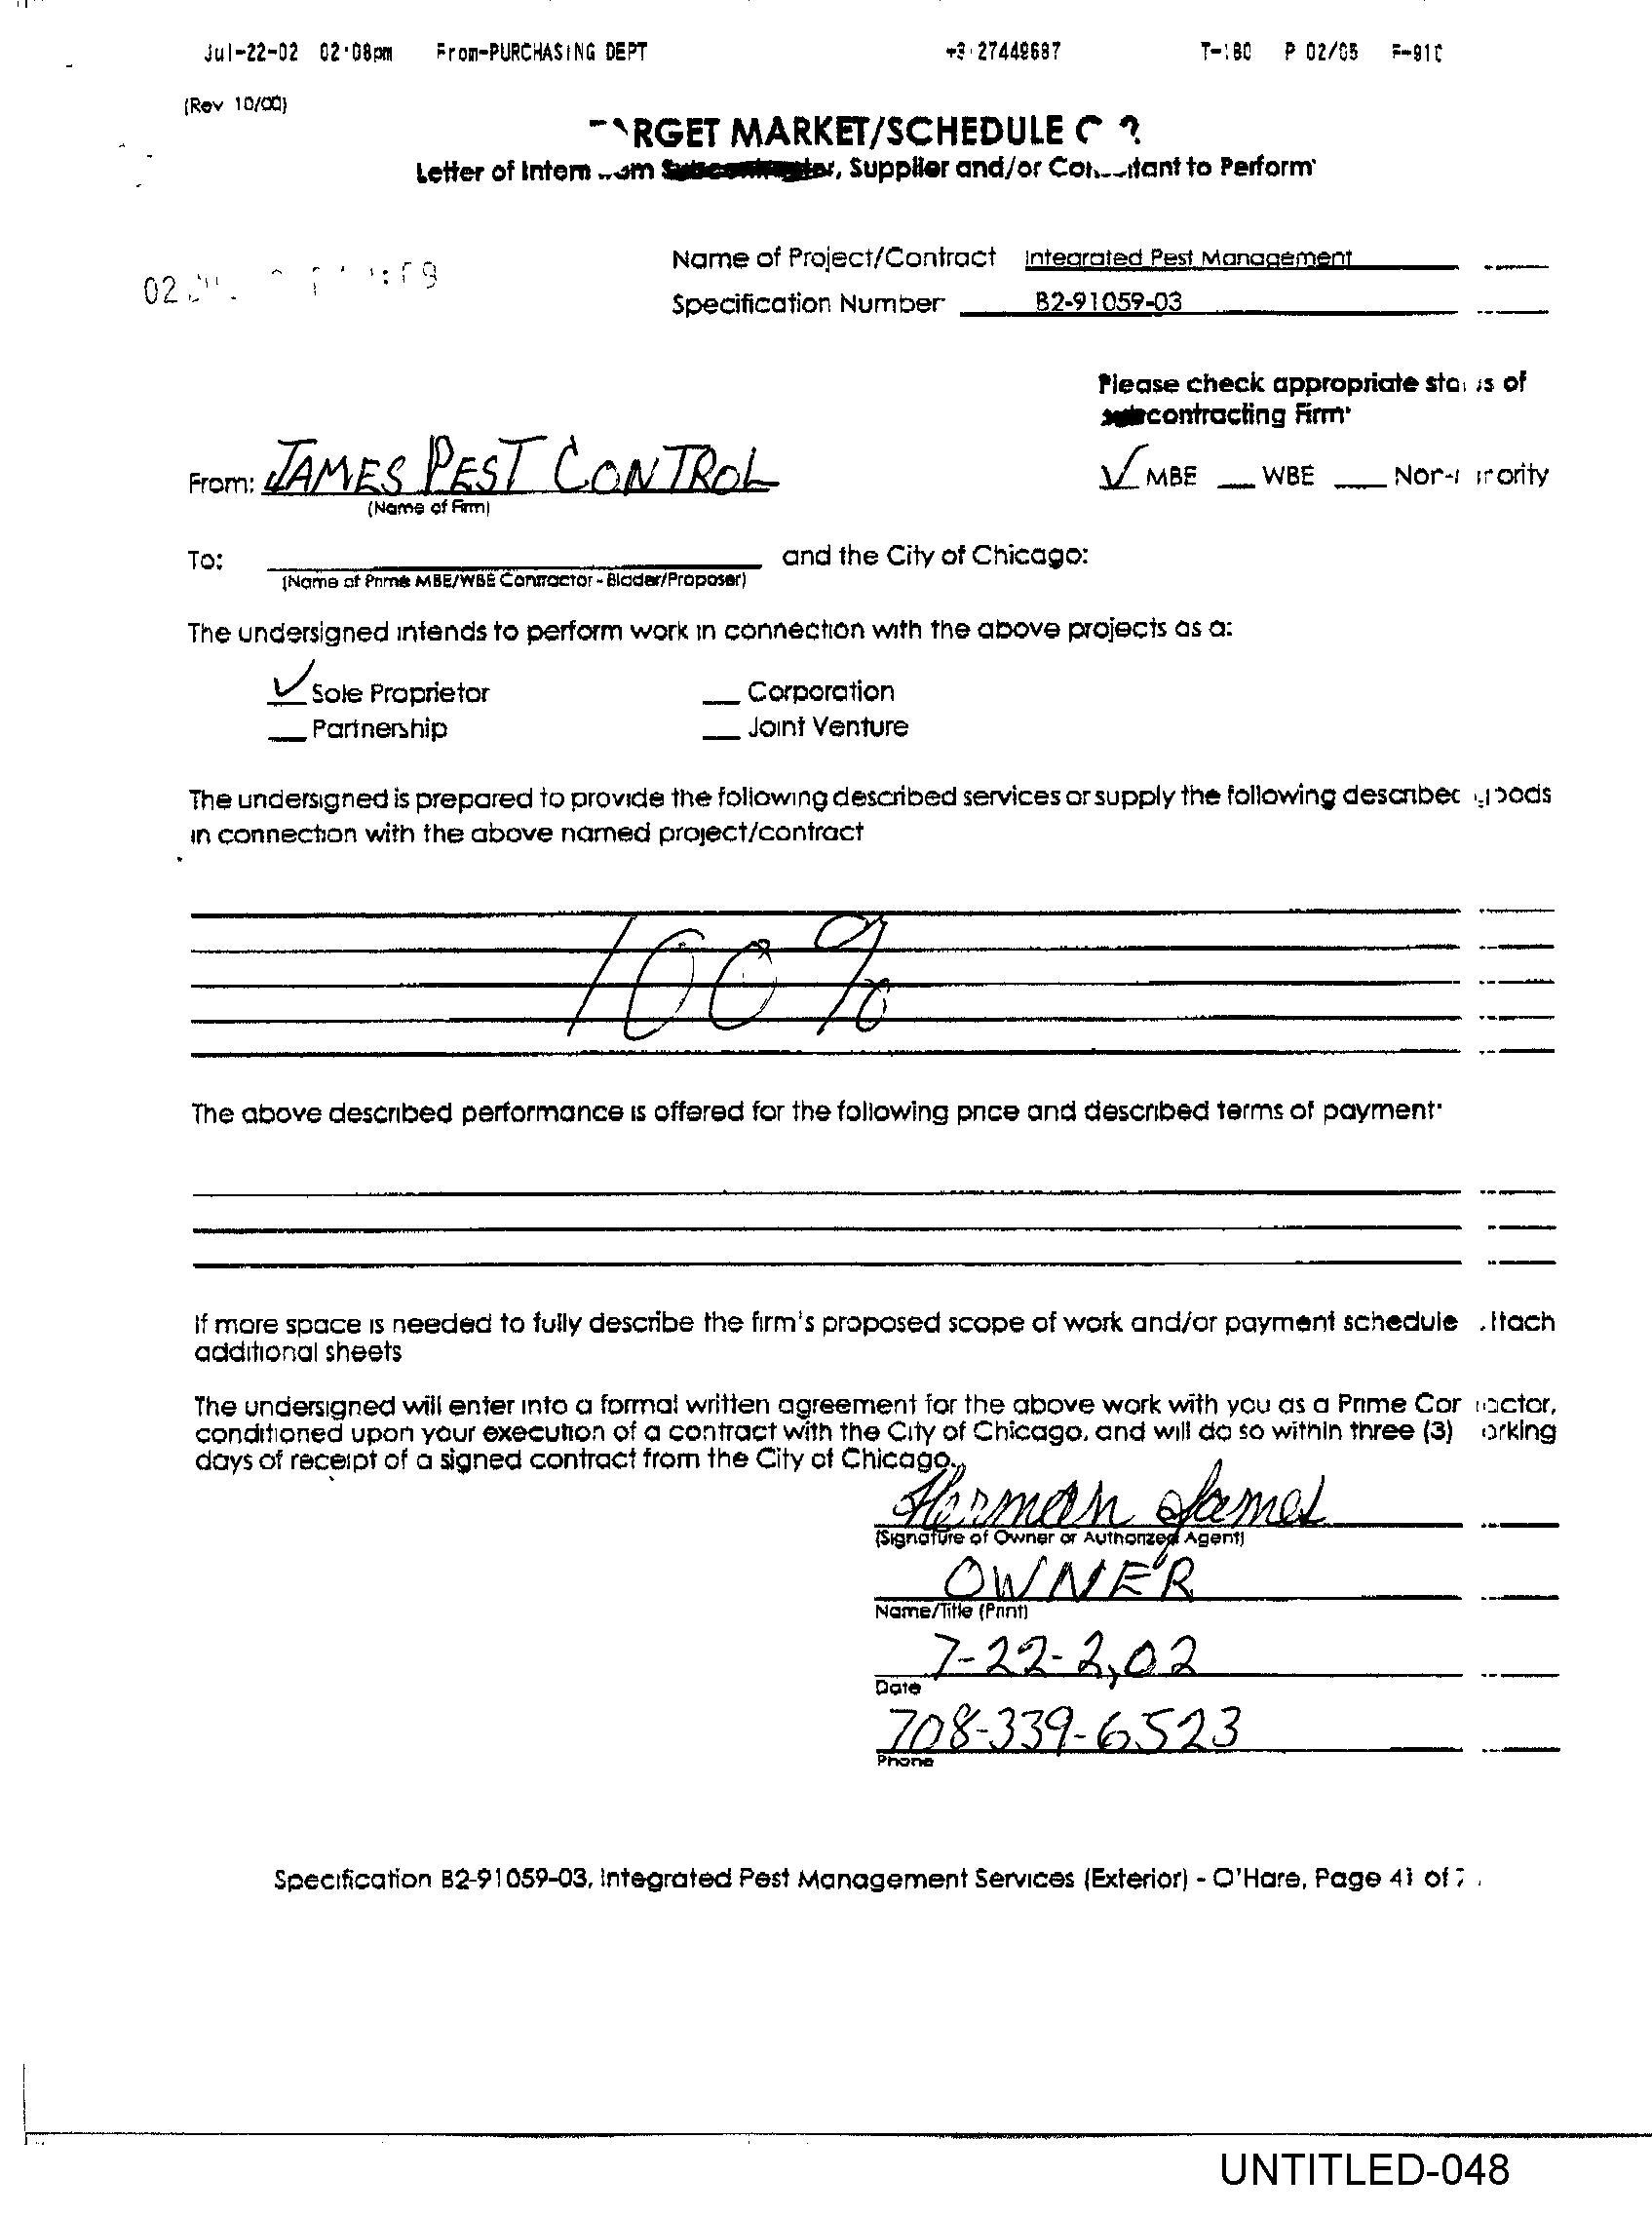 Jul-22-02 02:08pm From-PURCHASING DEPT T-180 P 02/05
(Rev 10/00)
RGET MARKET/SCHEDULE
Letter of Supplier and/or to Perform
02
Name of Project/Contract Integrated Pest Management
Specification Number B2-91059-03
Please check appropriate of
contracting Firm
From: JAMES PEST CONTROL
(Name of Firm)
✓ MBE __ WBE __
To: ____ and the City of Chicago:
(Name of Prime MBE/WBE Contractor - Bidder/Proposer)
The undersigned intends to perform work in connection with the above projects as a:
✓ Sole Proprietor __ Corporation
__ Partnership __ Joint Venture
The undersigned is prepared to provide the following described services or supply the following described goods
in connection with the above named project/contract
100%
The above described performance is offered for the following price and described terms of payment:
If more space is needed to fully describe the firm's proposed scope of work and/or payment schedule
additional sheets
The undersigned will enter into a formal written agreement for the above work with you as a Prime
conditioned upon your execution of a contract with the City of Chicago, and will do so within three (3) orking
days of receipt of a signed contract from the City of Chicago.
Herman James
(Signature of Owner or Authorized Agent)
OWNER
Name/Title (Print)
7-22-2,02
Date
708-339-6523
Phone
Specification B2-91059-03, Integrated Pest Management Services (Exterior) - O'Hare, Page 41 of
UNTITLED-048